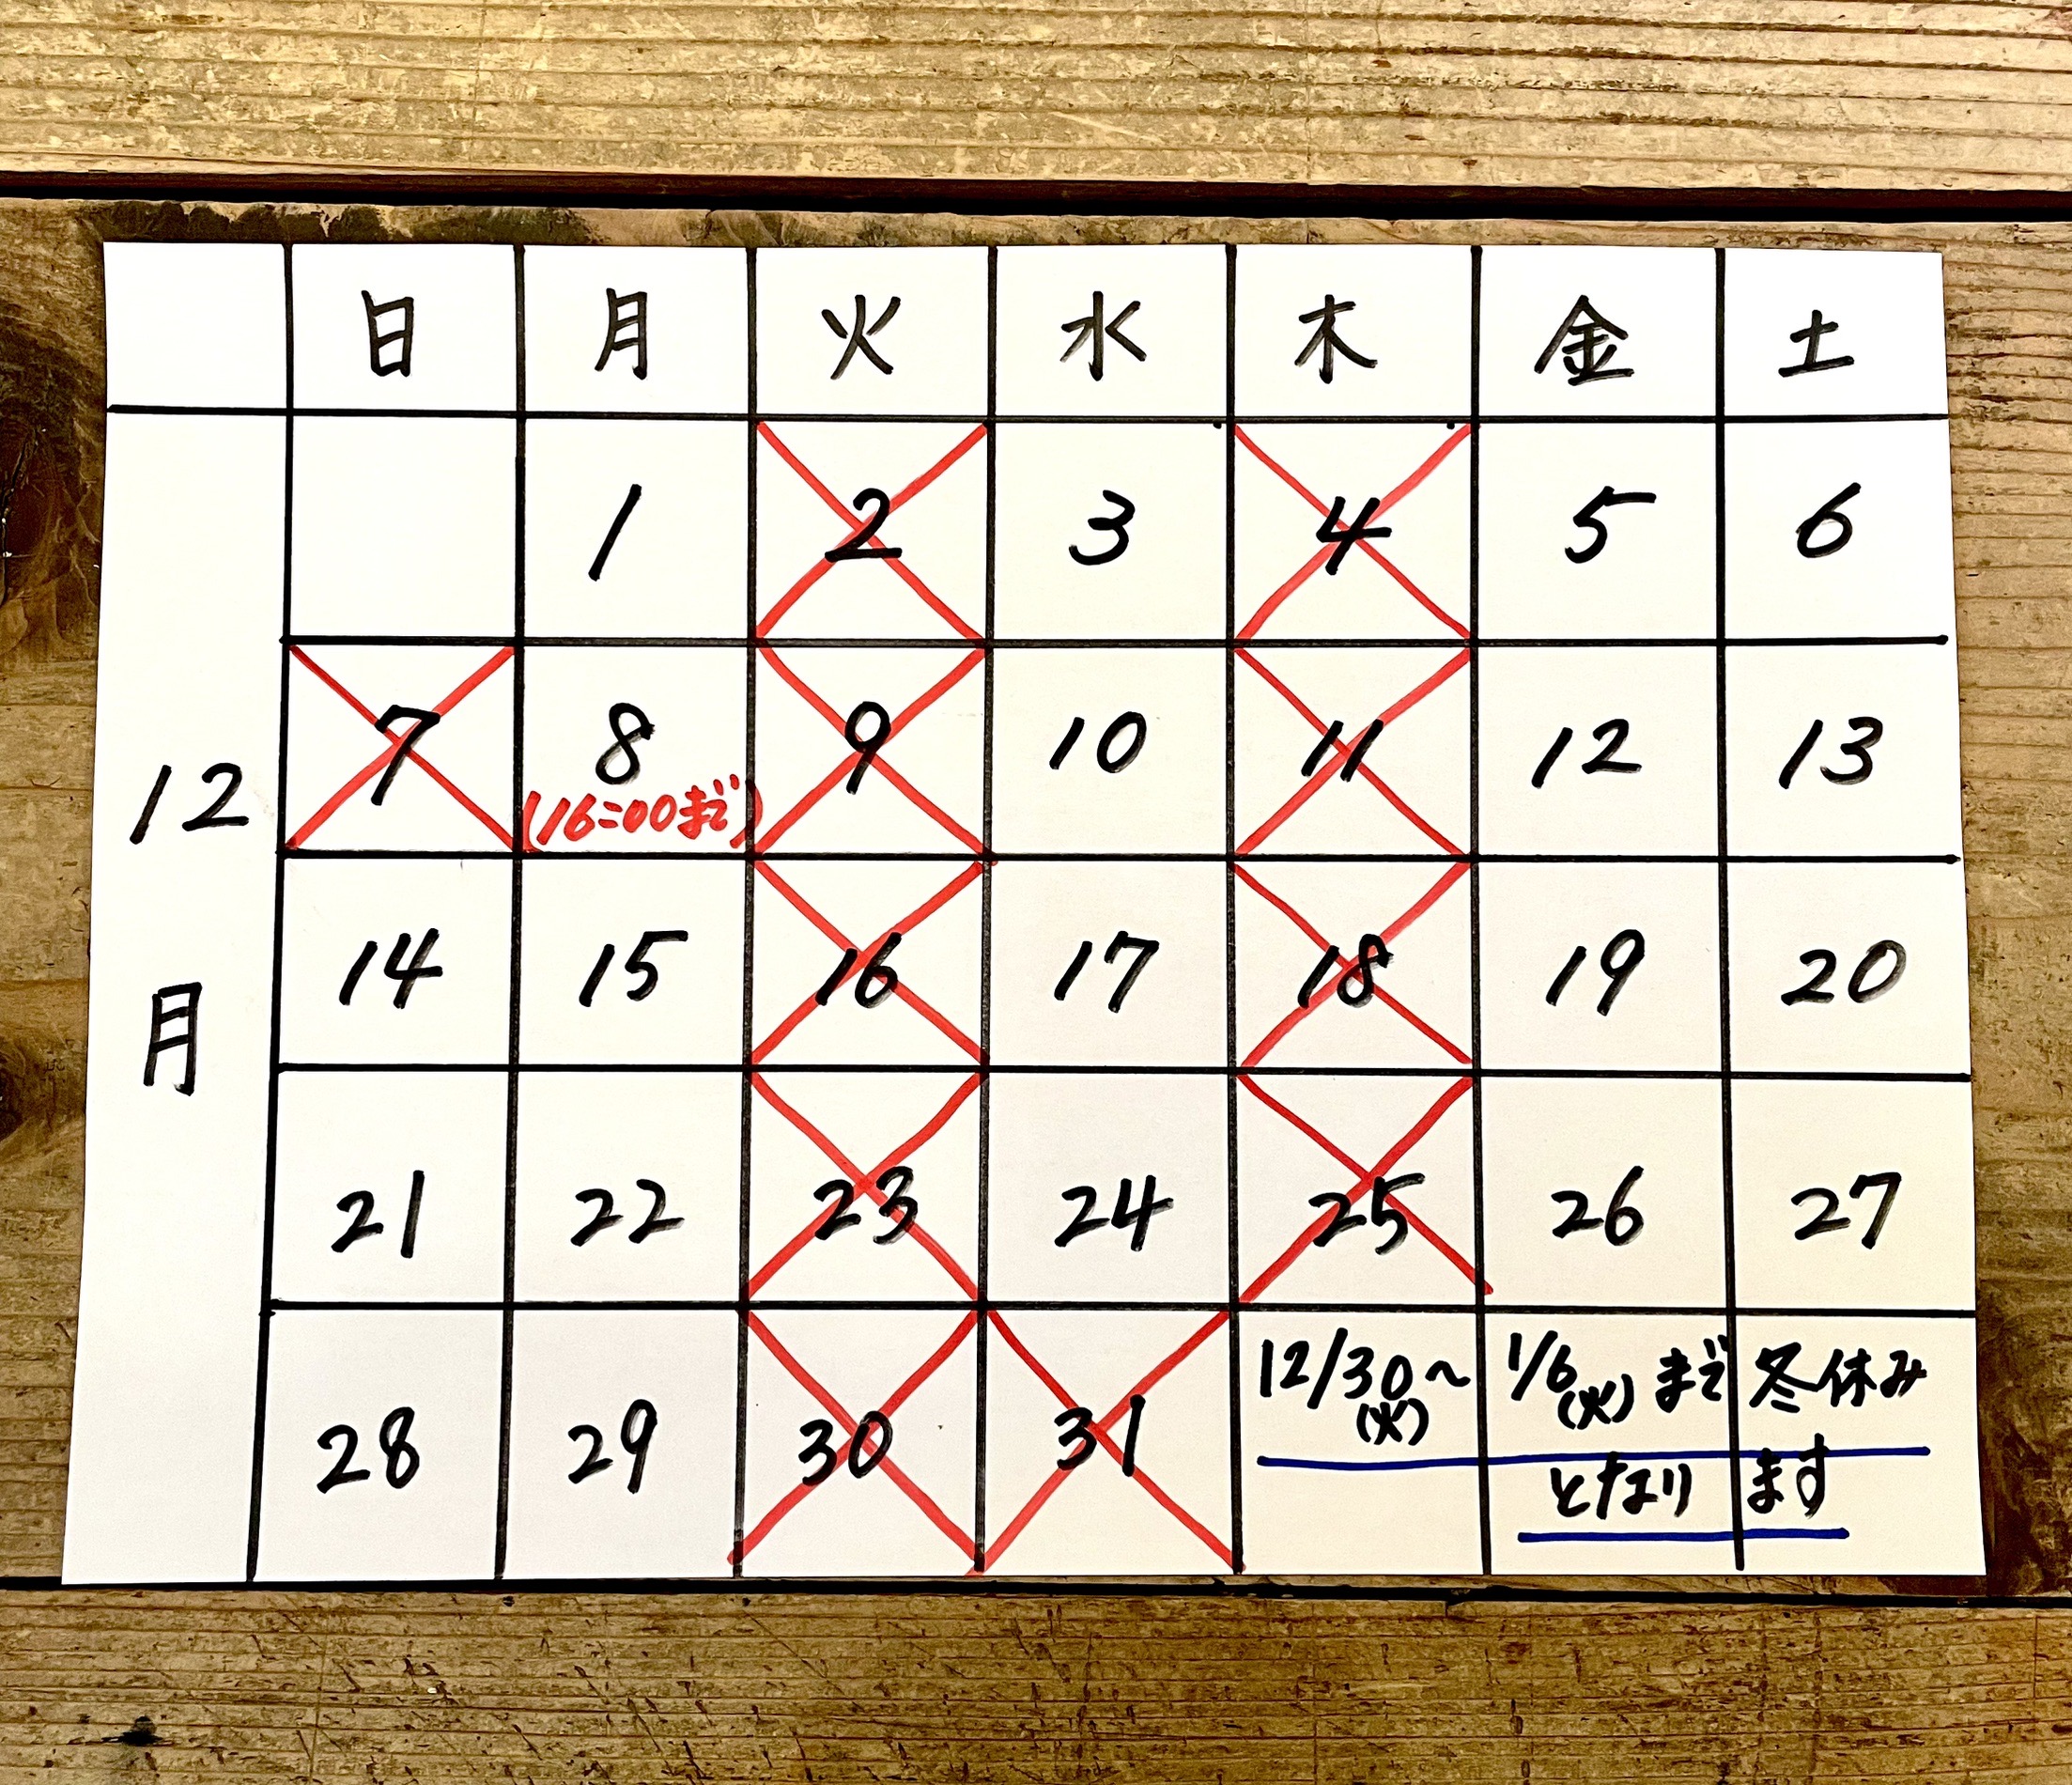 日 月 火 水 木 金 土
12月
1 2 3 4 5 6
7 8 9 10 11 12 13
(16:00まで)
14 15 16 17 18 19 20
21 22 23 24 25 26 27
28 29 30 31
12/30(火)〜1/6(火)まで冬休み
となります